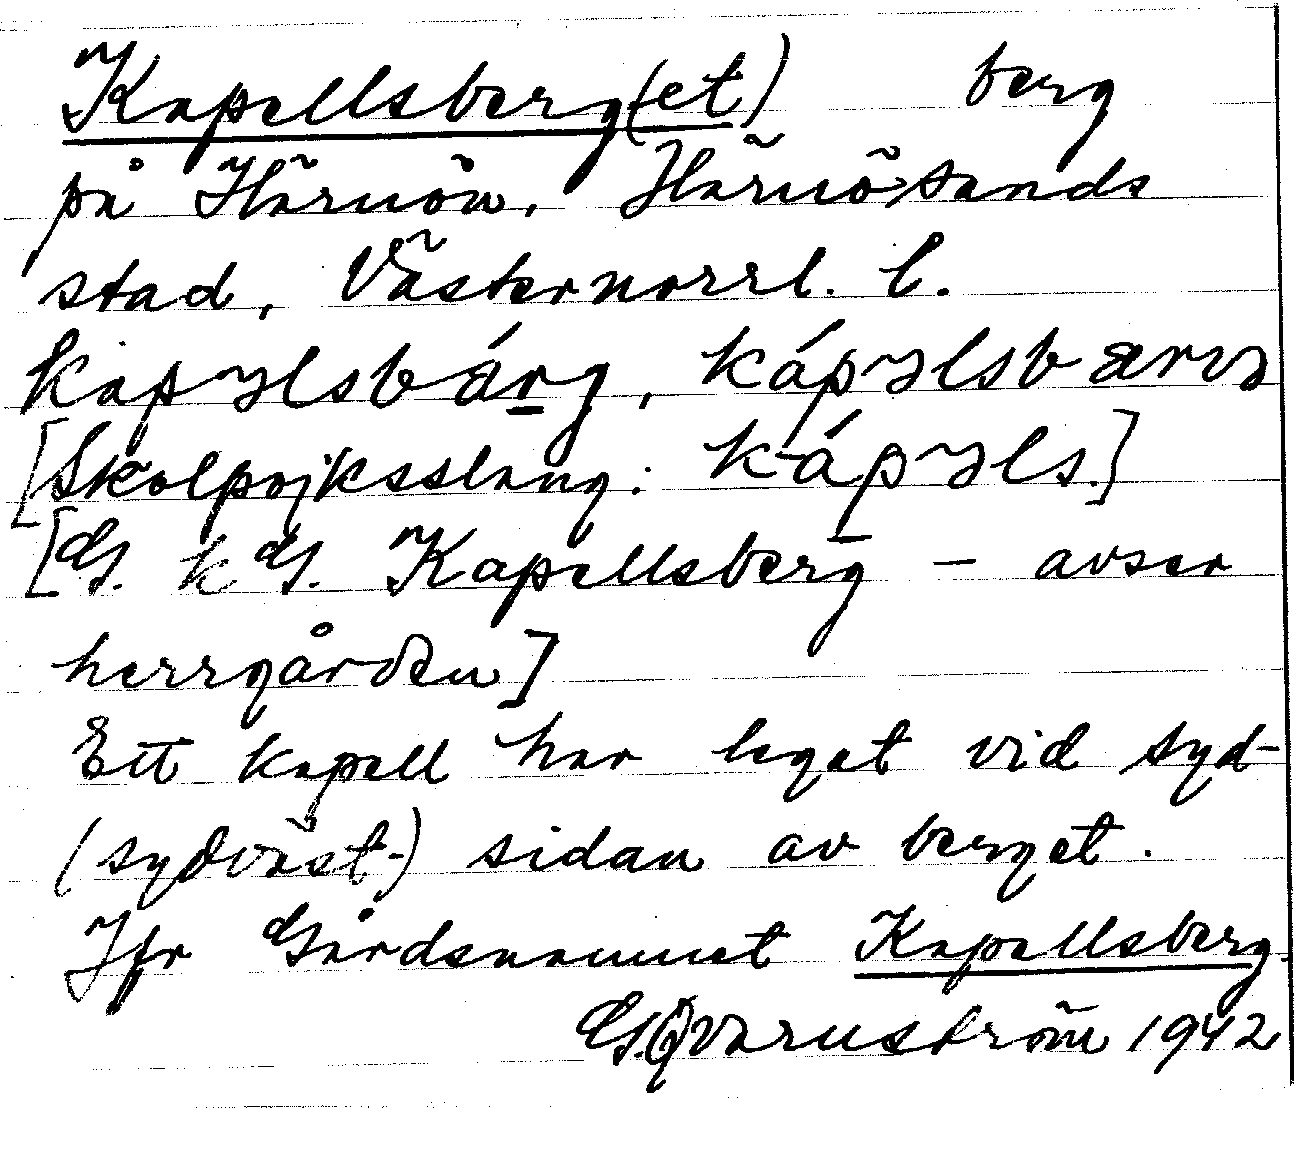 Kapellsberg(et) berg
på Härnön, Härnösands
stad, Västernorrl. l.
kapəlsbárg, kápəlsbærɜ
[Skolpojksslang: kápəls.]
[G. k G. Kapellsberg – avser
herrgården]
Ett kapell har legat vid syd-
(sydväst-) sidan av berget.
Jfr Gårdsnamnet Kapellsberg.
G. Qvarnström 1942